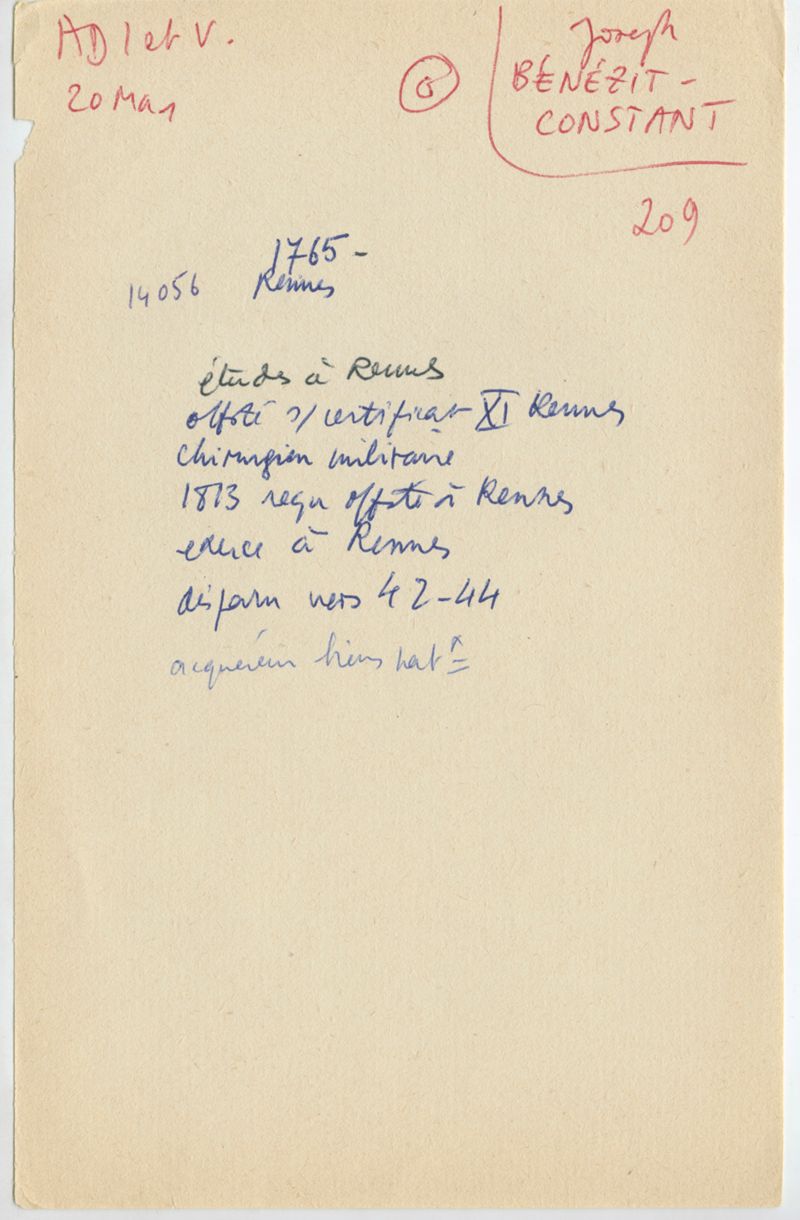 AD I et V.
20 Ma1
Joseph
BÉNÉZIT-
CONSTANT
209
1765 -
14056 Rennes
études à Rennes
offsté s/ certificat XI Rennes
chirurgien militaire
1813 reçu offsté à Rennes
exerce à Rennes
disparu vers 42-44
acquéreur biens natx